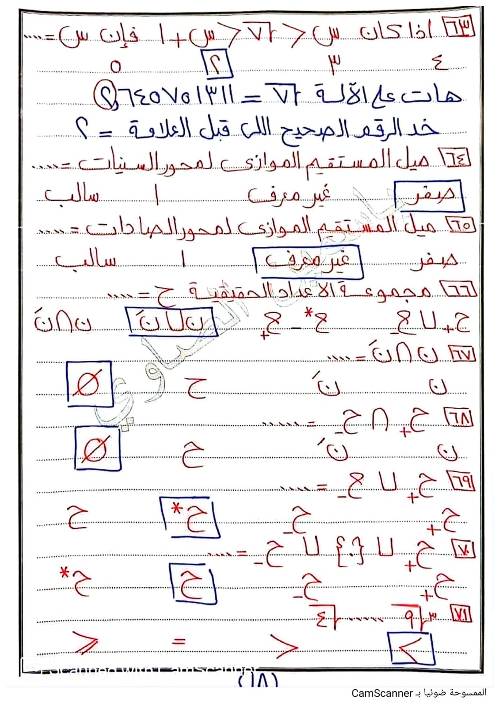 ٦٣ اذا كان س < √٧ < س + ١ فإن س = ....
٤ ٣ ٢ ٥
هات على الآلة √٧ = ٢,٦٤٥٧٥١٣١١
خد الرقم الصحيح اللى قبل العلامة = ٢
٦٤ ميل المستقيم الموازى لمحور السينات = ....
صفر غير معرف ١ سالب
٦٥ ميل المستقيم الموازى لمحور الصادات = ....
صفر غير معرف ١ سالب
٦٦ مجموعة الاعداد الحقيقية ح = ....
ح₊ ∪ ح₋ ح* - ح₊ ن ∪ نَ ن ∩ نَ
٦٧ ن ∩ نَ = ....
ن نَ ح Ø
٦٨ ح₊ ∩ ح₋ = ......
ن نَ ح Ø
٦٩ ح₊ ∪ ح₋ = .....
ح₊ ح₋ ح* ح
٧٠ ح₊ ∪ {٠} ∪ ح₋ = ....
ح₊ ح₋ ح ح*
٧١ ∛٩ ...... √٤
> < = ≤
(١٨)
Scanned with CamScanner
الممسوحة ضوئيا بـ CamScanner